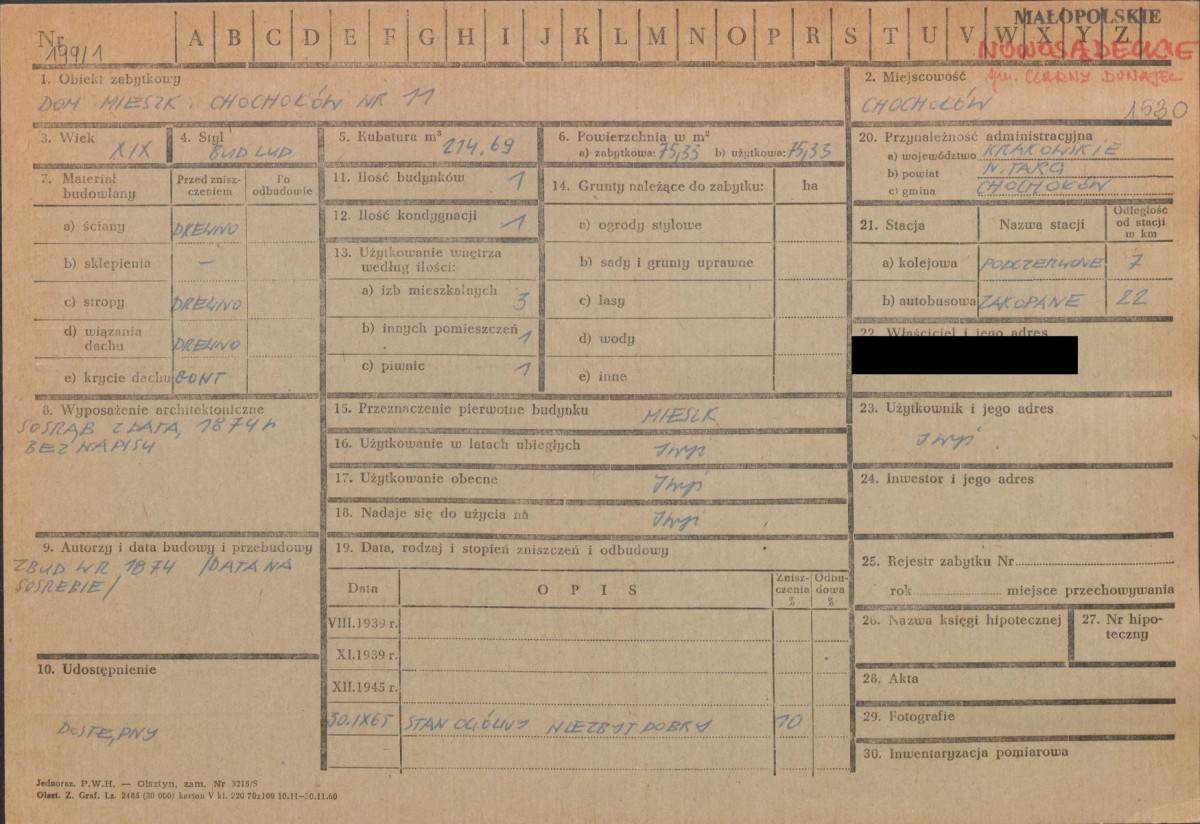 MAŁOPOLSKIE
Nr 199/1
A B C D E F G H I J K L M N O P R S T U V W X Y Z
NOWOSĄDECKIE
gm. CZARNY DUNAJEC
1. Obiekt zabytkowy
DOM MIESZK. CHOCHOŁÓW NR 11
2. Miejscowość
CHOCHOŁÓW 1530
3. Wiek XIX
4. Styl BUD LUD
5. Kubatura m³ 214.69
6. Powierzchnia w m²
a) zabytkowa: 75,33 b) użytkowa: 75,33
7. Materiał budowlany
Przed zniszczeniem
Po odbudowie
a) ściany DREWNO
b) sklepienia —
c) stropy DREWNO
d) wiązania dachu DREWNO
e) krycie dachu GONT
8. Wyposażenie architektoniczne
SOSRĄB Z DATĄ, 1874 r
BEZ NAPISU
9. Autorzy i data budowy i przebudowy
ZBUD W R 1874 /DATA NA
SOSREBIE/
10. Udostępnienie
DOSTĘPNY
11. Ilość budynków 1
12. Ilość kondygnacji 1
13. Użytkowanie wnętrza
według ilości:
a) izb mieszkalnych 3
b) innych pomieszczeń 1
c) piwnic 1
14. Grunty należące do zabytku: ha
a) ogrody stylowe
b) sady i grunty uprawne
c) lasy
d) wody
e) inne
15. Przeznaczenie pierwotne budynku MIESZK
16. Użytkowanie w latach ubiegłych
17. Użytkowanie obecne
18. Nadaje się do użycia na
19. Data, rodzaj i stopień zniszczeń i odbudowy
Data OPIS Zniszczenia % Odbudowa %
VIII.1939 r.
XI.1939 r.
XII.1945 r.
30.IX65 STAN OGÓLNY NIEZBYT DOBRY 10
20. Przynależność administracyjna
a) województwo KRAKOWSKIE
b) powiat N. TARG
c) gmina CHOCHOŁÓW
21. Stacja Nazwa stacji Odległość od stacji w km
a) kolejowa PODCZERWONE 7
b) autobusowa ZAKOPANE 22
22. Właściciel i jego adres
23. Użytkownik i jego adres
24. Inwestor i jego adres
25. Rejestr zabytku Nr
rok miejsce przechowywania
26. Nazwa księgi hipotecznej
27. Nr hipoteczny
28. Akta
29. Fotografie
30. Inwentaryzacja pomiarowa
Jednoraz. P.W.H. — Olsztyn, zam. Nr 3215/S
Olszt. Z. Graf. Lz. 2485 (30 000) karton V kl. 220 70x100 10.11—30.11.60